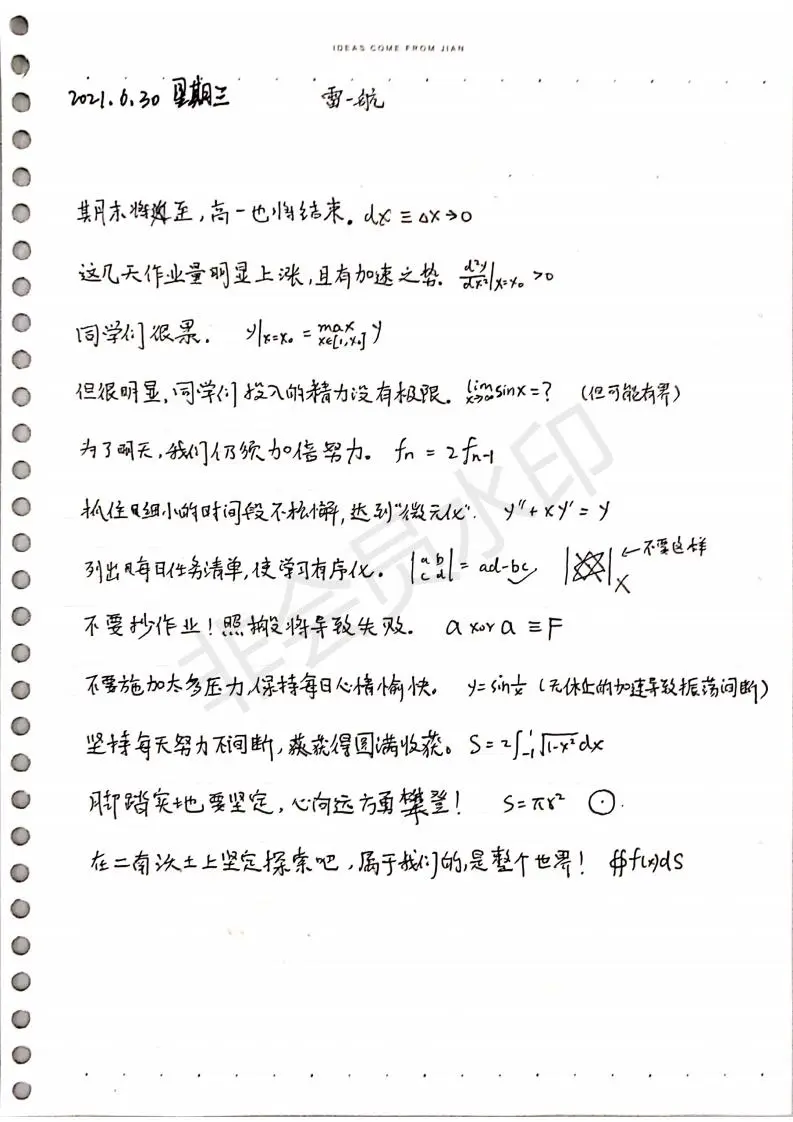 IDEAS COME FROM JIAN
2021.6.30 星期三 雷一航
期末将至，高一也将结束。dx ≡ Δx→0
这几天作业量明显上涨，且有加速之势。d²y/dx²|x=x₀ >0
同学们很累。 y|x=x₀ = max x∈[1,x₀] y
但很明显，同学们投入的精力没有极限。lim x→∞ sinx=? （但可能有界）
为了明天，我们仍须加倍努力。 fn = 2fn-1
抓住细小的时间段不松懈，达到“微元化”. y″+xy′=y
列出每日任务清单，使学习有序化。 |a b c d| = ad-bc ←不要这样
不要抄作业！照搬将导致失败。 a xor a ≡F
不要施加太多压力，保持每日心情愉快。 y=sin1/x（无休止的加速导致振荡间断）
坚持每天努力不间断，获得圆满收获。S=2∫₋₁¹√1-x²dx
脚踏实地要坚定，心向远方勇攀登！ S=πr² ⊙.
在二南沃土上坚定探索吧，属于我们的，是整个世界！ ∯f(x)dS
非会员水印